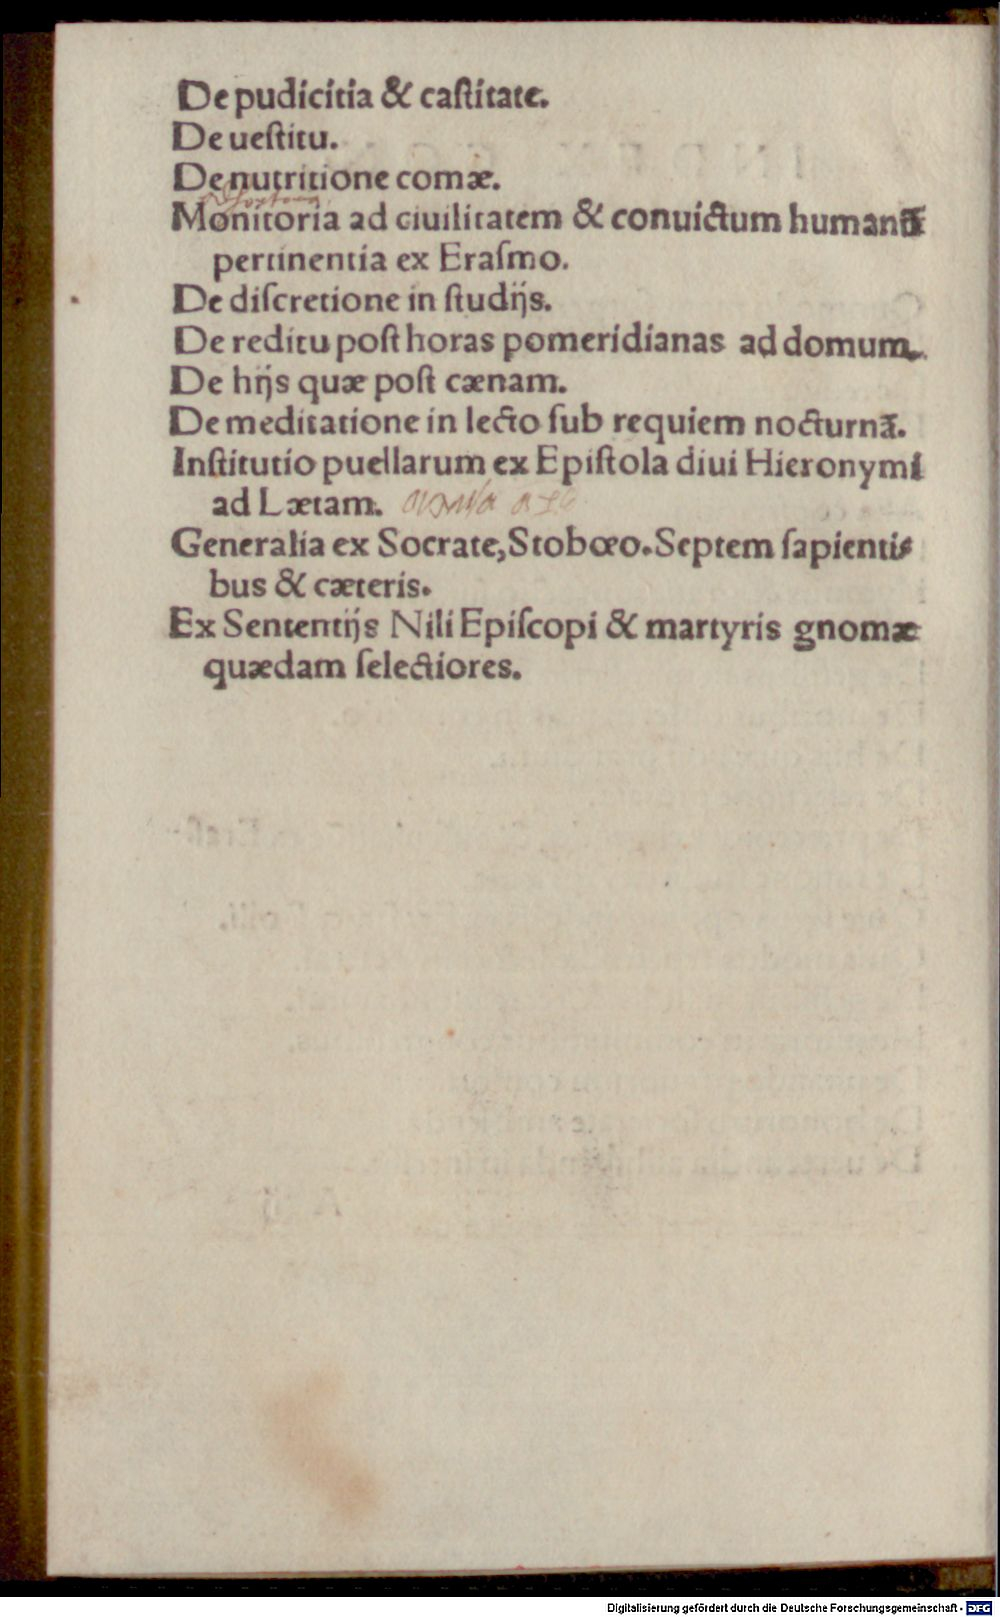 De pudicitia & caſtitate.
De ueſtitu.
De nutritione comæ.
Monitoria ad ciuilitatem & conuictum humanū
pertinentia ex Eraſmo.
De diſcretione in ſtudijs.
De reditu poſt horas pomeridianas ad domum.
De hijs quæ poſt cænam.
De meditatione in lecto ſub requiem nocturnā.
Inſtitutio puellarum ex Epiſtola diui Hieronymi
ad Lætam.
Generalia ex Socrate, Stobœo. Septem ſapienti-
bus & cæteris.
Ex Sententijs Nili Epiſcopi & martyris gnomæ
quædam ſelectiores.
Digitalisierung gefördert durch die Deutsche Forschungsgemeinschaft - DFG